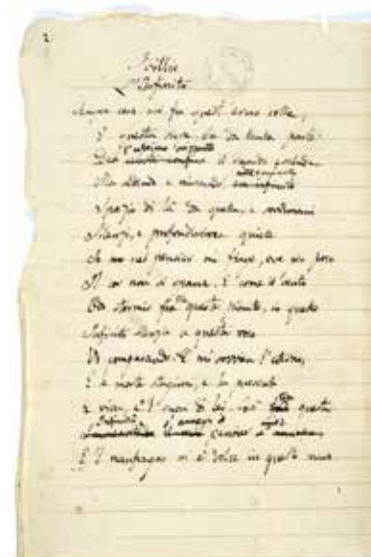 2.
Idillio
L'Infinito
Sempre caro mi fu quest'ermo colle,
E questa siepe, che da tanta parte
l'ultimo orizzonte
De il guardo esclude.
Ma sedendo e mirando,
Spazio di là da quella, e sovrumani
Silenzi, e profondissima quiete
Io nel pensier mi fingo, ove per poco
Il cor non si spaura. E come il vento
Odo stormir fra queste piante, io quello
Infinito silenzio a questa voce
Vo comparando: E mi sovvien l'eterno,
E le morte stagioni, e la presente
E viva, e 'l suon di lei. Così questa
Infinità s'annega il mio
pensier
E 'l naufragar m'è dolce in questo mare.